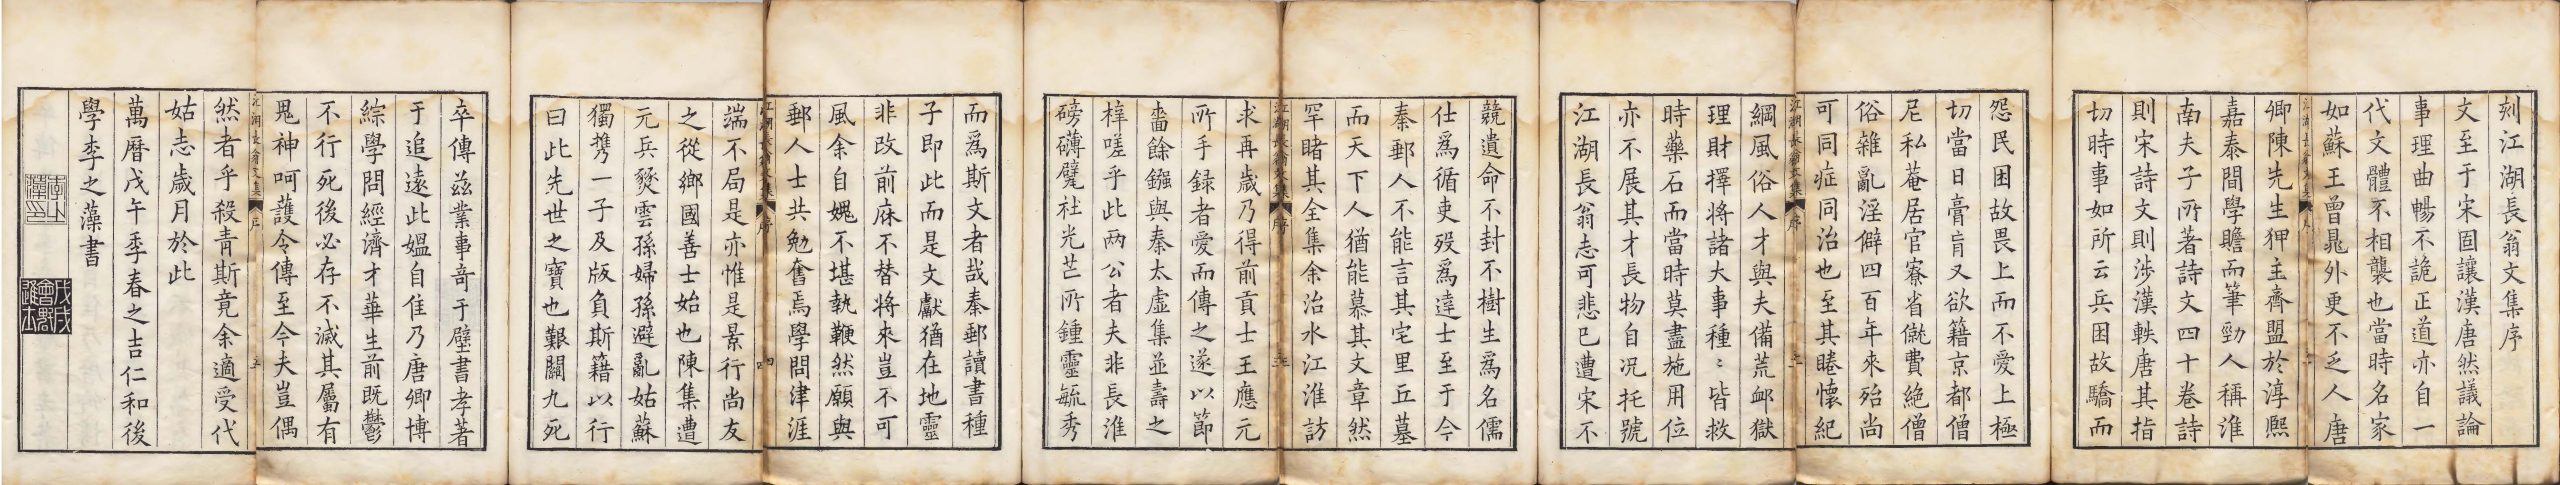 刻江湖長翁文集序
文至于宋固讓漢唐然議論
事理曲暢不詭正道亦自一
代文體不相襲也當時名家
如蘇王曾晁外更不乏人唐
卿陳先生狎主齊盟於淳熙
嘉泰間學贍而筆勁人稱淮
南夫子所著詩文四十卷詩
則宋詩文則涉漢軼唐其指
切時事如所云兵困故驕而
怨民困故畏上而不愛上極
切當日膏肓又欲籍京都僧
尼私菴居官寮省僦費絶僧
俗雜亂淫僻四百年來殆尚
可同症同治也至其睠懷紀
綱風俗人才與夫備荒䘏獄
理財擇將諸大事種〻皆救
時藥石而當時莫盡施用位
亦不展其才長物自况托號
江湖長翁志可悲已遭宋不
競遺命不封不樹生爲名儒
仕爲循吏歿爲達士至于今
秦郵人不能言其宅里丘墓
而天下人猶能慕其文章然
罕睹其全集余治水江淮訪
求再歲乃得前貢士王應元
所手録者愛而傳之遂以節
嗇餘鏹與秦太虛集並壽之
梓嗟乎此两公者夫非長淮
磅礴甓社光芒所鍾靈毓秀
而爲斯文者哉秦郵讀書種
子即此而是文獻猶在地靈
非改前庥不替將來豈不可
風余自媿不堪執鞭然願與
郵人士共勉奮焉學問津涯
端不局是亦惟是景行尚友
之從鄉國善士始也陳集遭
元兵燹雲孫婦孫避亂姑蘇
獨擕一子及版負斯籍以行
曰此先世之寶也艱關九死
卒傳兹業事竒于壁書孝著
于追遠此媼自佳乃唐卿博
綜學問經濟才華生前既鬱
不行死後必存不滅其屬有
鬼神呵護令傳至今夫豈偶
然者乎殺青斯竟余適受代
姑志歲月於此
萬曆戊午季春之吉仁和後
學李之藻書
李之藻印
戊戌會魁進士
江湖長翁文集 序 二
江湖長翁文集 序 三
江湖長翁文集 序 四
江湖長翁文集 序 五